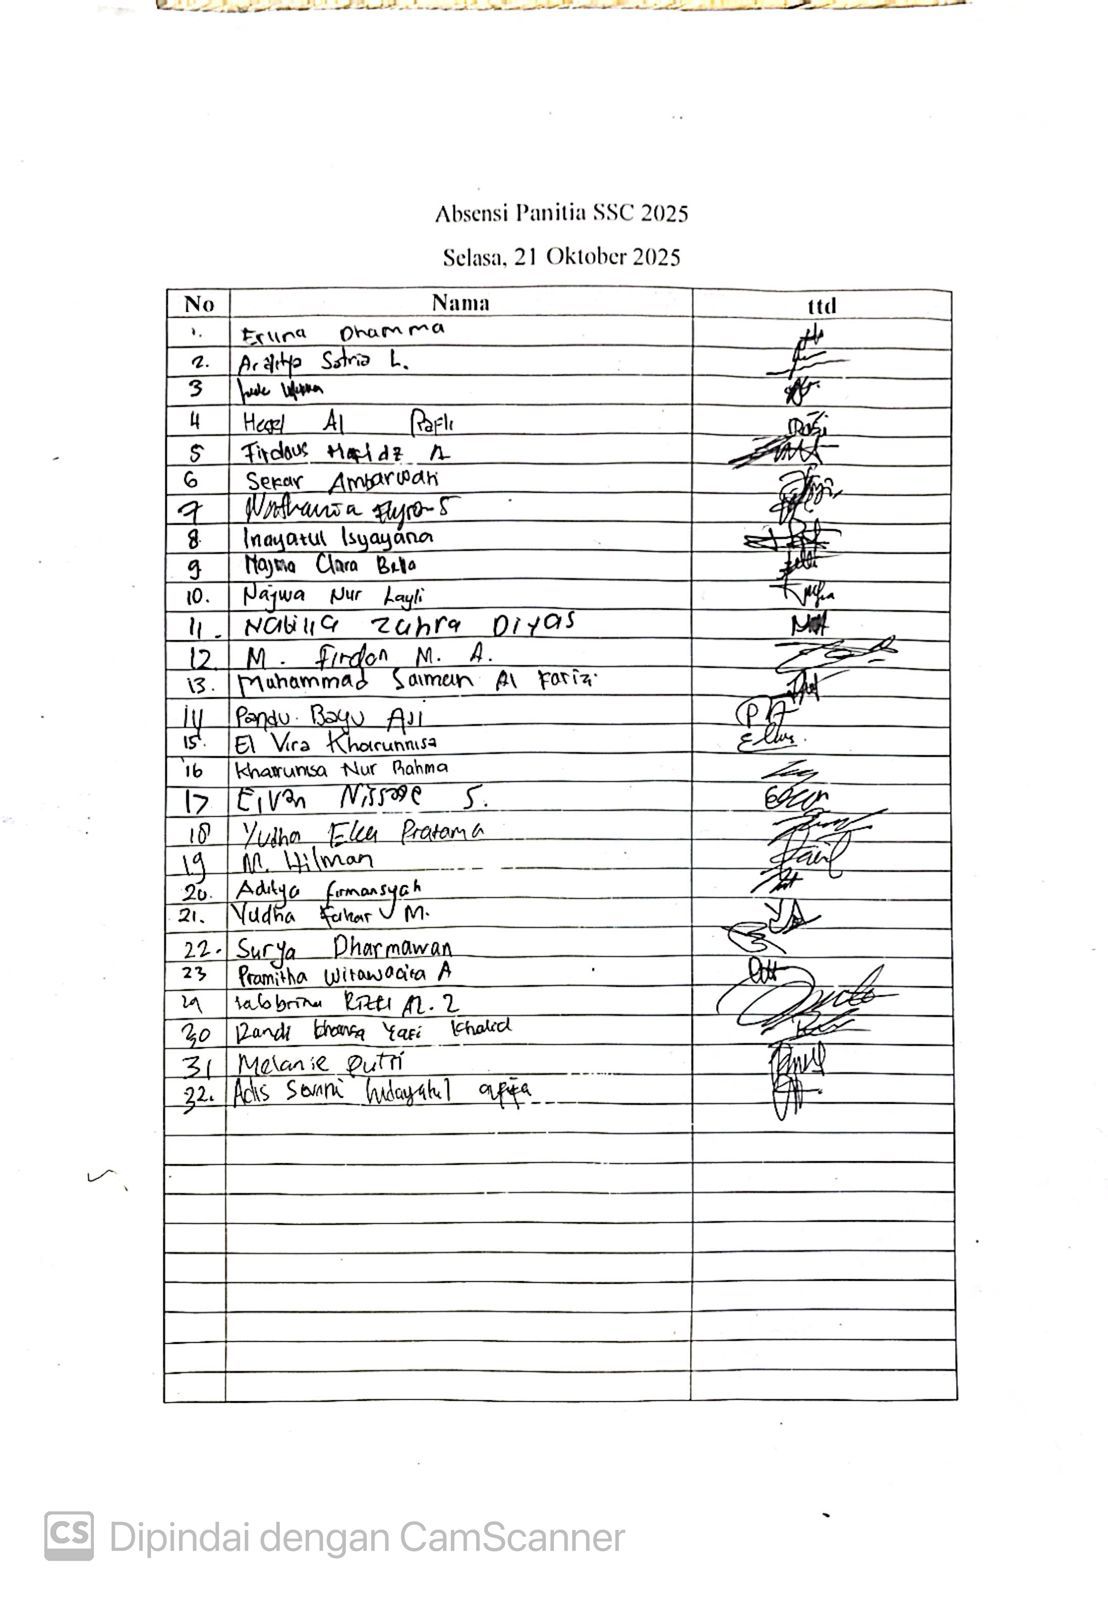 Absensi Panitia SSC 2025
Selasa, 21 Oktober 2025
No Nama ttd
1. Eruna Dhamma
2. Satria L.
3
4 Al Rafli
5 Firdaus Hafidz A
6 Sekar Ambarwati
7
8 Inayatul Isyayana
9 Najma Clara Bella
10. Najwa Nur Layli
11. Nabilla Zahra Diyas
12 M. Firdon M. A.
13. Muhammad Saiman Al Farizi
14 Pandu Bayu Aji
15. El Vira Khoirunnisa
16 Khairunisa Nur Rahma
17 Eivan S.
18 Yudha Eka Pratama
19 M. Hilman
20. Aditya Firmansyah
21. Yudha Fahar M.
22. Surya Dharmawan
23 Pramitha A
29
30 Randi Khalid
31 Melanie Putri
32. Adis Hidayatul
CS Dipindai dengan CamScanner